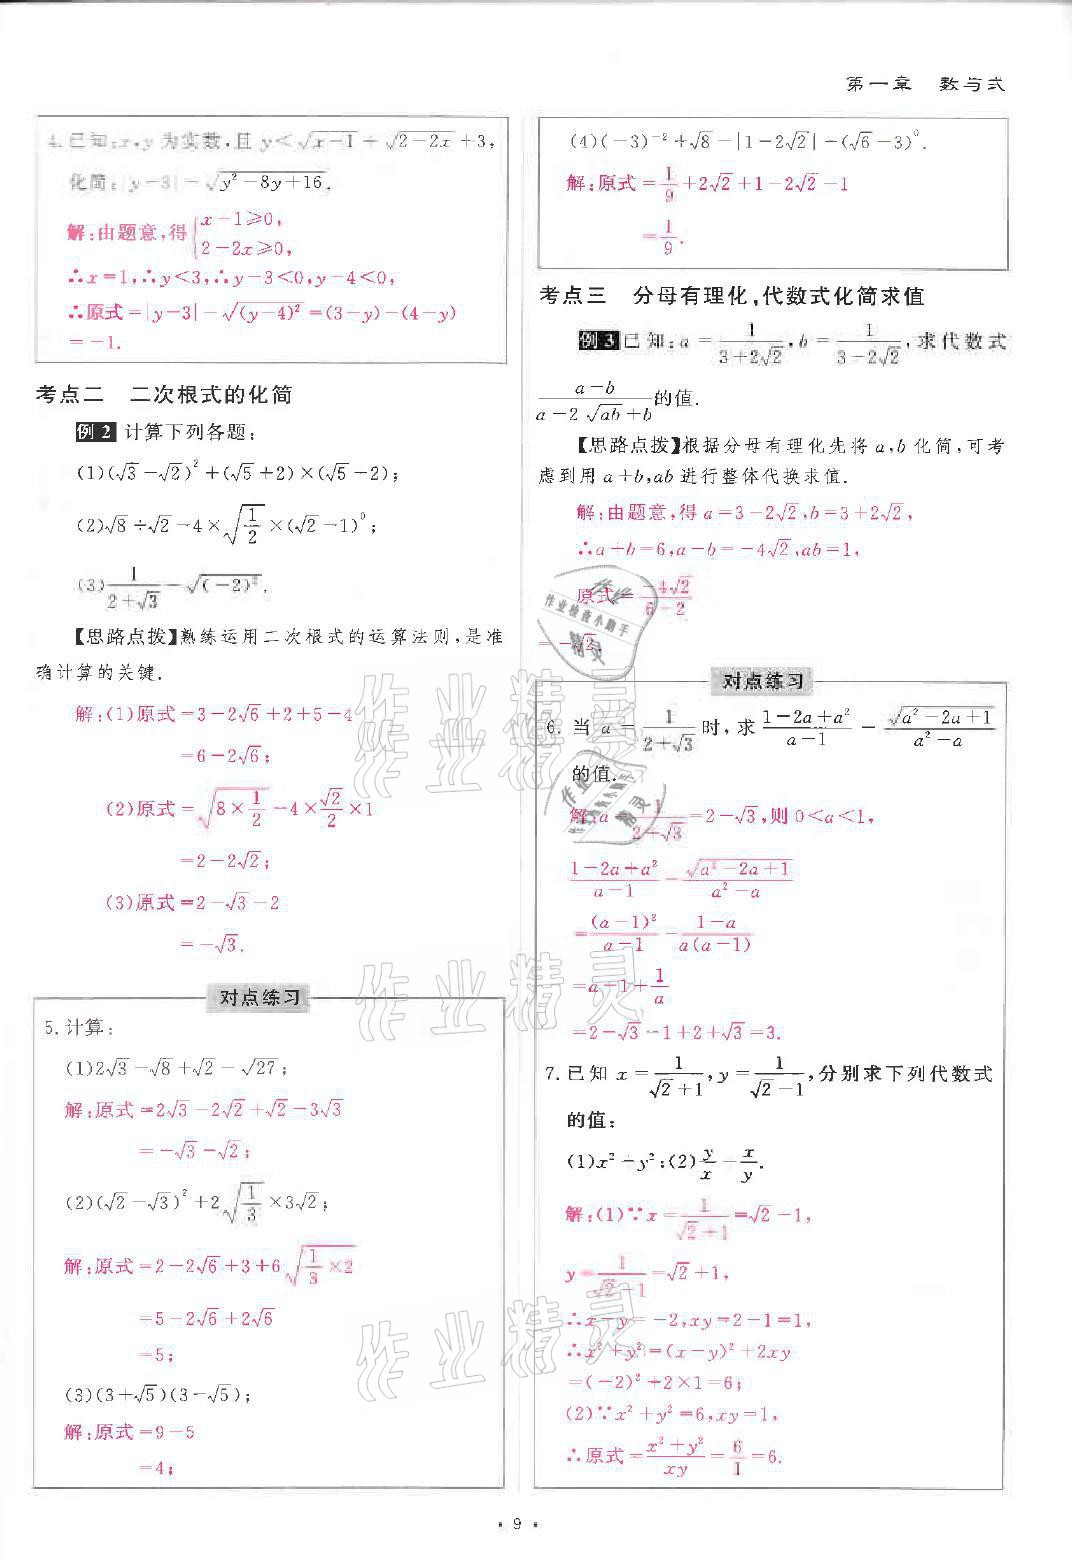 第一章 数与式
4. 已知:x,y 为实数,且 y<√(x-1)+√(2-2x)+3,
化简:|y-3|-√(y²-8y+16).
解:由题意,得{x-1≥0,
2-2x≥0,
∴x=1,∴y<3,∴y-3<0,y-4<0,
∴原式=|y-3|-√((y-4)²)=(3-y)-(4-y)
=-1.
考点二 二次根式的化简
例2 计算下列各题:
(1)(√3-√2)²+(√5+2)×(√5-2);
(2)√8÷√2-4×√(1/2)×(√2-1)⁰;
(3)1/(2+√3)-√((-2)²).
【思路点拨】熟练运用二次根式的运算法则,是准
确计算的关键.
解:(1)原式=3-2√6+2+5-4
=6-2√6;
(2)原式=√(8×1/2)-4×√2/2×1
=2-2√2;
(3)原式=2-√3-2
=-√3.
对点练习
5. 计算:
(1)2√3-√8+√2-√27;
解:原式=2√3-2√2+√2-3√3
=-√3-√2;
(2)(√2-√3)²+2√(1/3)×3√2;
解:原式=2-2√6+3+6√(1/3×2)
=5-2√6+2√6
=5;
(3)(3+√5)(3-√5);
解:原式=9-5
=4;
(4)(-3)⁻²+√8-|1-2√2|-(√6-3)⁰.
解:原式=1/9+2√2+1-2√2-1
=1/9.
考点三 分母有理化,代数式化简求值
例3 已知:a=1/(3+2√2),b=1/(3-2√2),求代数式
(a-b)/(a-2√(ab)+b)的值.
【思路点拨】根据分母有理化先将 a,b 化简,可考
虑到用 a+b,ab 进行整体代换求值.
解:由题意,得 a=3-2√2,b=3+2√2,
∴a+b=6,a-b=-4√2,ab=1,
原式=-4√2/(6-2)
=-√2.
对点练习
6. 当 a=1/(2+√3)时,求(1-2a+a²)/(a-1)-√(a²-2a+1)/(a²-a)
的值.
解:a=1/(2+√3)=2-√3,则 0<a<1,
(1-2a+a²)/(a-1)-√(a²-2a+1)/(a²-a)
=(a-1)²/(a-1)-(1-a)/(a(a-1))
=a-1+1/a
=2-√3-1+2+√3=3.
7. 已知 x=1/(√2+1),y=1/(√2-1),分别求下列代数式
的值:
(1)x²+y²;(2)y/x+x/y.
解:(1)∵x=1/(√2+1)=√2-1,
y=1/(√2-1)=√2+1,
∴x-y=-2,xy=2-1=1,
∴x²+y²=(x-y)²+2xy
=(-2)²+2×1=6;
(2)∵x²+y²=6,xy=1,
∴原式=(x²+y²)/xy=6/1=6.
·9·
作业精灵
作业精灵
作业精灵
作业检查小助手
精灵
作业检查小助手
精灵